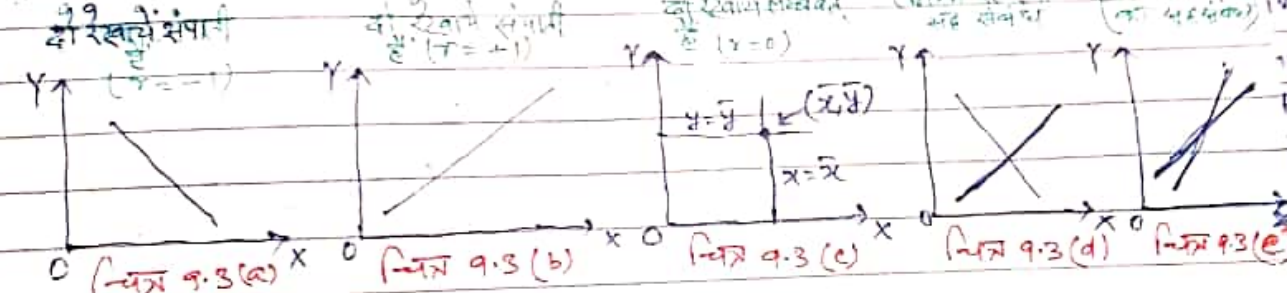 दो रेखायें संपाती
हैं
(r = -1)
दो रेखायें संपाती
हैं (r = +1)
हैं (r = 0)
Y
O
X
चित्र 9.3 (a)
Y
O
X
चित्र 9.3 (b)
Y
y = ȳ
(x̄, ȳ)
x = x̄
O
X
चित्र 9.3 (c)
Y
O
X
चित्र 9.3 (d)
Y
O
चित्र 9.3 (e)